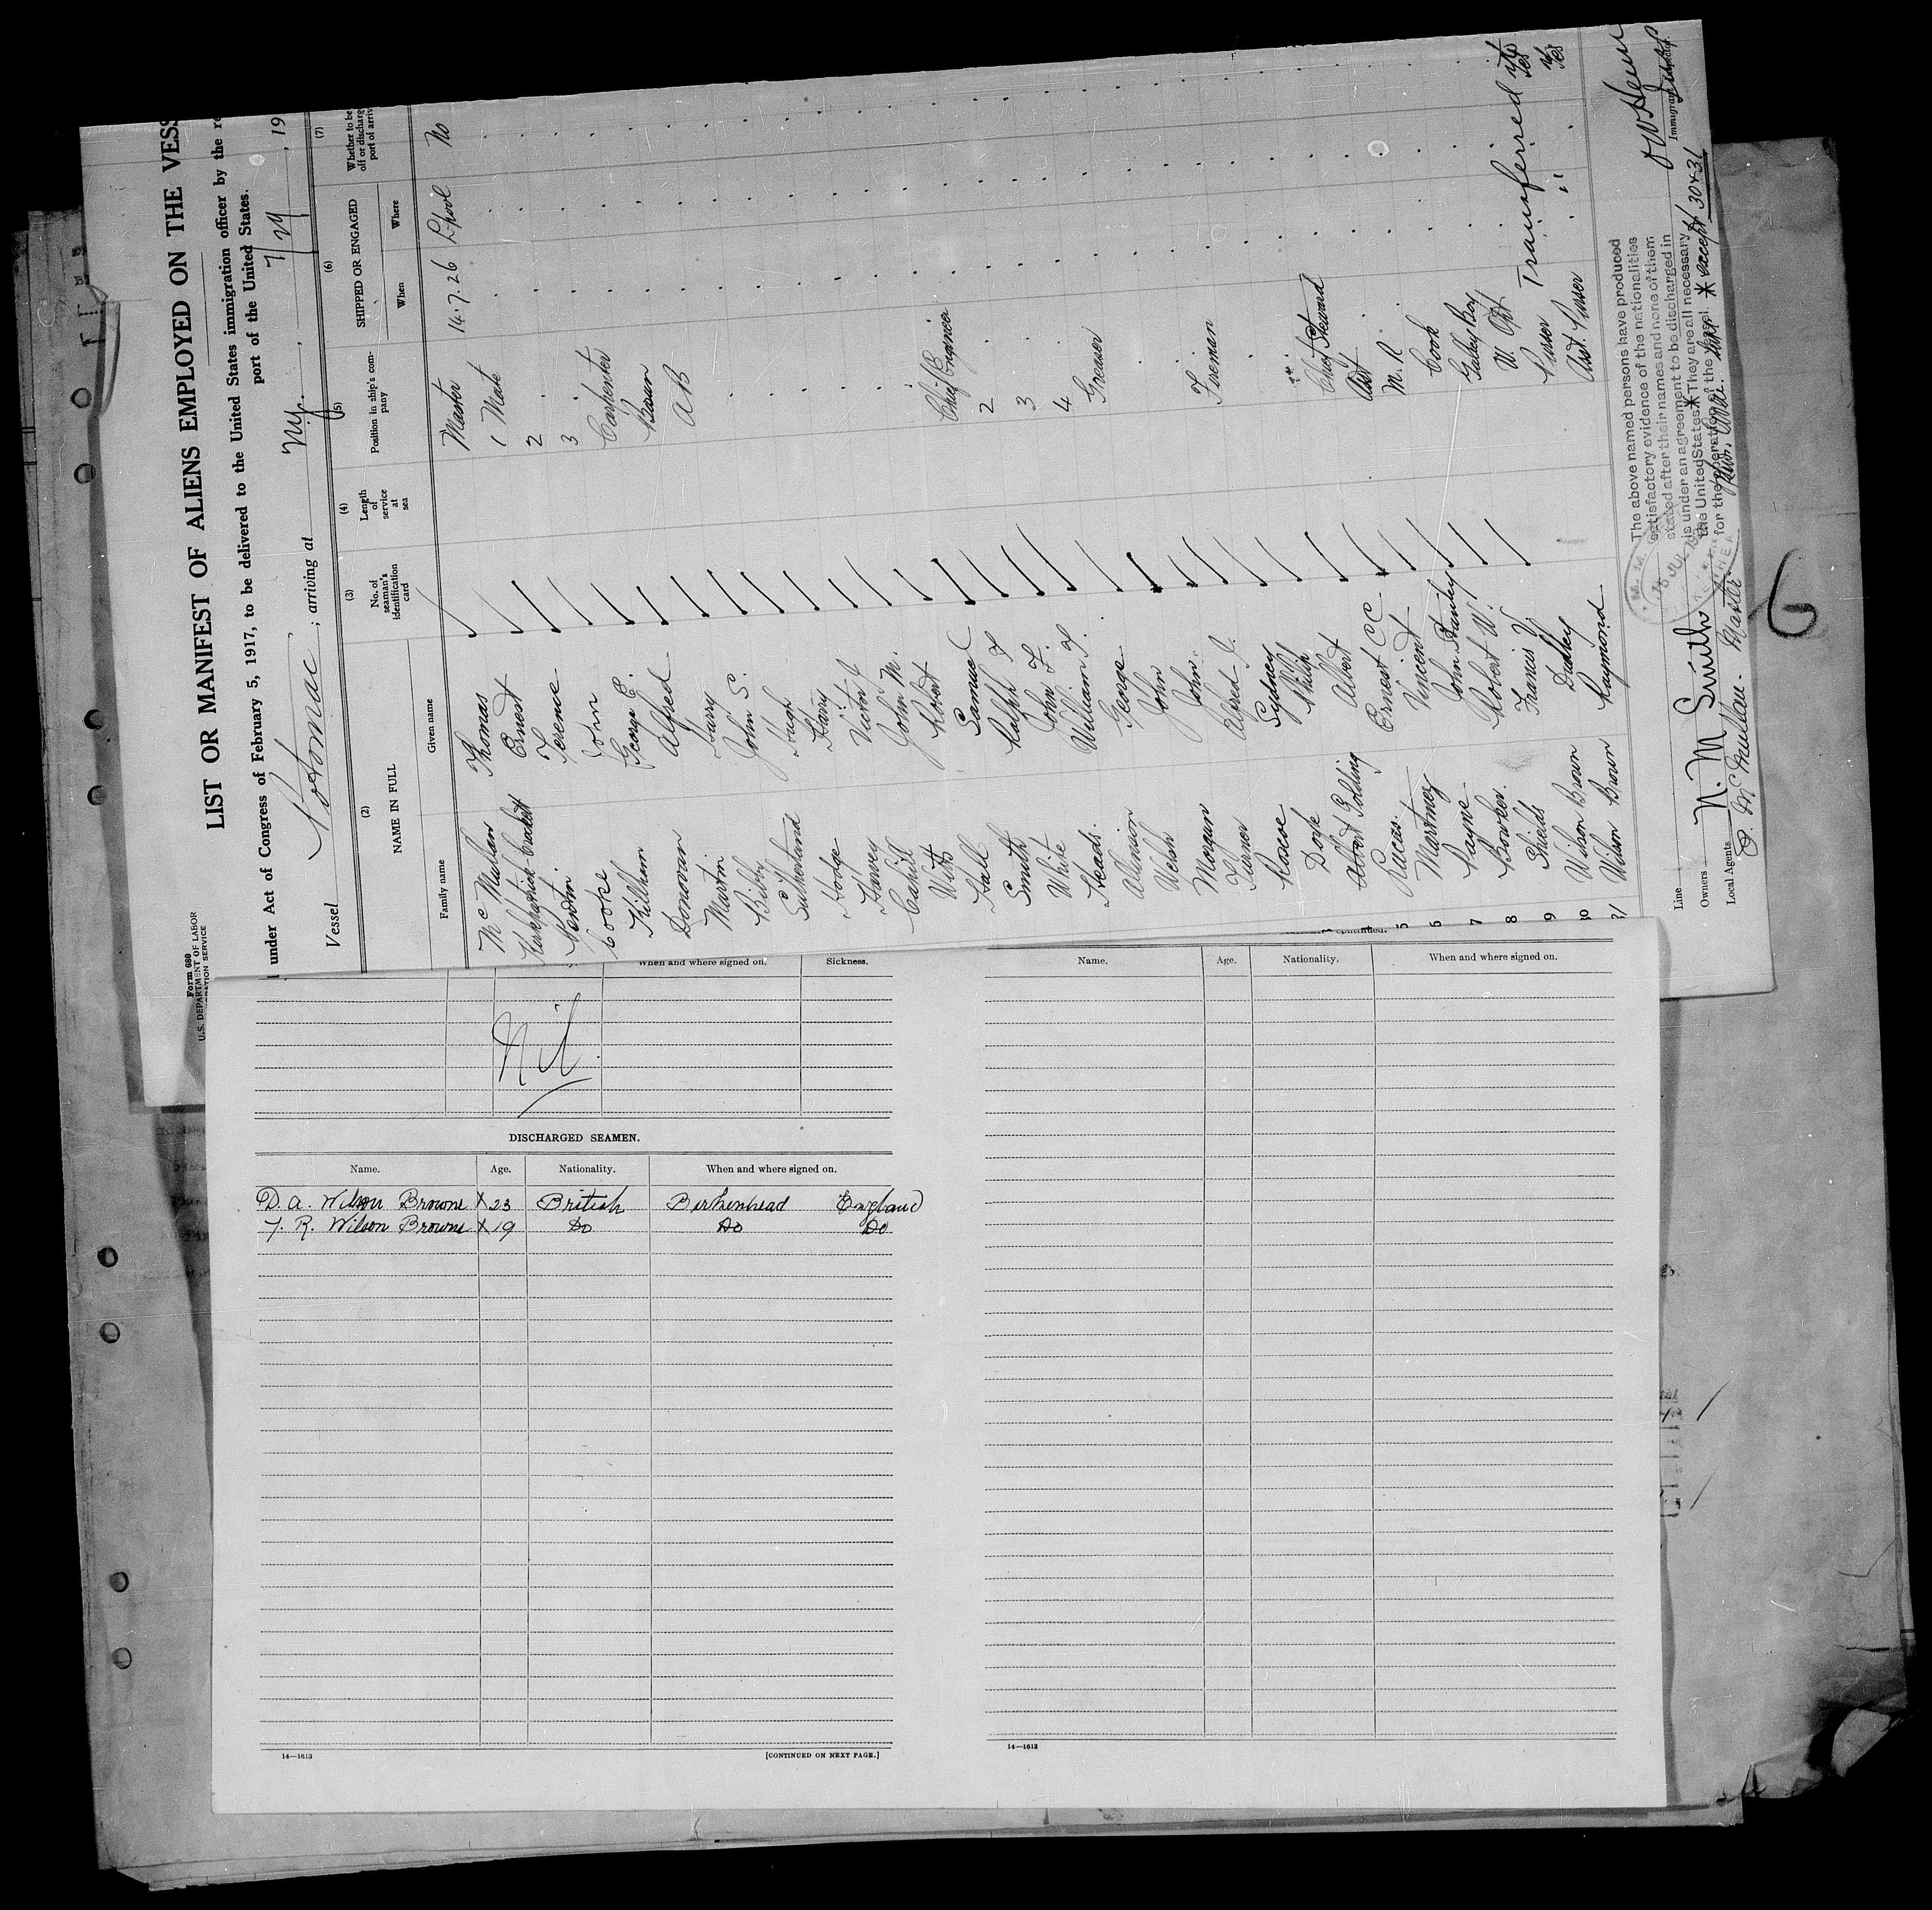 Form 680
U.S. DEPARTMENT OF LABOR
LIST OR MANIFEST OF ALIENS EMPLOYED ON THE VESS
under Act of Congress of February 5, 1917, to be delivered to the United States immigration officer by the re
port of the United States.
Vessel Potomac ; arriving at N.Y. , 7/29 , 19
(2) (3) (4) (5) (6) (7)
NAME IN FULL
Family name Given name
No. of seaman's identification card
Length of service at sea
Position in ship's company
SHIPPED OR ENGAGED
When Where
Whether to be
off or discharg
port of arriv
McMullan Thomas Master 14.7.26 L'pool No
Kirkpatrick Ernest 1 Mate
Terence 2
Cooke John 3
Killham George E. Carpenter
Donovan Alfred Bosun
Martin Harry AB
Bibby John S.
Sutherland Hugh
Hodge Harry
Harvey Victor J
Cahill John M.
Witts Robert
Hall Samuel Chief Engineer
Smith Ralph F 2
White John F. 3
Steads William F. 4
Allinson George Greaser
Welsh John
Morgan John
Turner Alfred J. Fireman
Roscoe Sydney
Doyle Philip
Golding Albert Chief Steward
Lucas Ernest CC Asst
5
6 Martinez Vincent M. R.
7 Payne John Stanley Cook
8 Bowker Robert W. Galley Boy
9 Shields Francis Y W. Opr
30 Wilson Brown Dudley Purser Transferred Yes
31 Wilson Brown Raymond Asst. Purser " Yes
The above named persons have produced
satisfactory evidence of the nationalities
stated after their names and none of them
is under an agreement to be discharged in
the United States * They are all necessary
for the operation of the vessel. * except 30 & 31
Line
Owners N. M Smith
Local Agents
D. McMullan - Master
Immigrant Inspector.
6
When and where signed on. Sickness.
Nil
DISCHARGED SEAMEN.
Name. Age. Nationality. When and where signed on.
D. A. Wilson Browne X 23 British Birkenhead England
J. R. Wilson Browne X 19 Do Do Do
14—1613 [CONTINUED ON NEXT PAGE.]
Name. Age. Nationality. When and where signed on.
14—1613